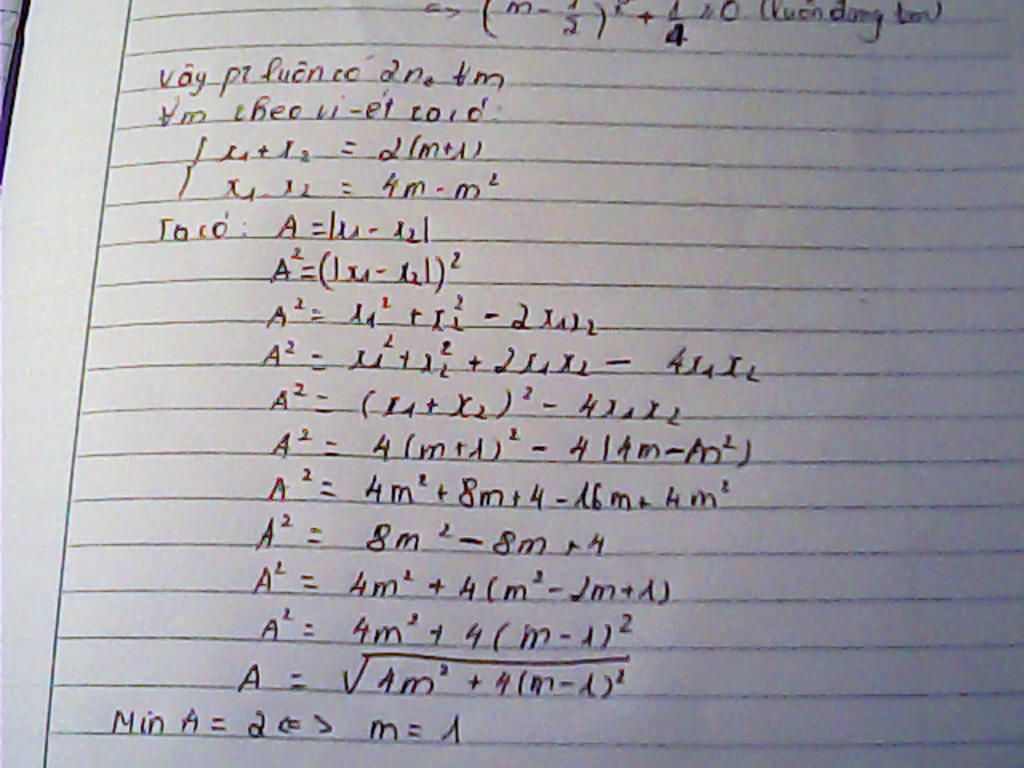 <=> (m - 1/2)² + 1/4 ≥ 0 (luôn đúng ∀m)
Vậy pt luôn có 2 n₀ ∀m
∀m theo vi-ét ta có:
{ x₁ + x₂ = 2(m+1)
{ x₁ . x₂ = 4m - m²
Ta có: A = |x₁ - x₂|
A² = (|x₁ - x₂|)²
A² = x₁² + x₂² - 2x₁x₂
A² = x₁² + x₂² + 2x₁x₂ - 4x₁x₂
A² = (x₁ + x₂)² - 4x₁x₂
A² = 4(m+1)² - 4(4m - m²)
A² = 4m² + 8m + 4 - 16m + 4m²
A² = 8m² - 8m + 4
A² = 4m² + 4(m² - 2m + 1)
A² = 4m² + 4(m - 1)²
A = √(4m² + 4(m-1)²)
Min A = 2 <=> m = 1